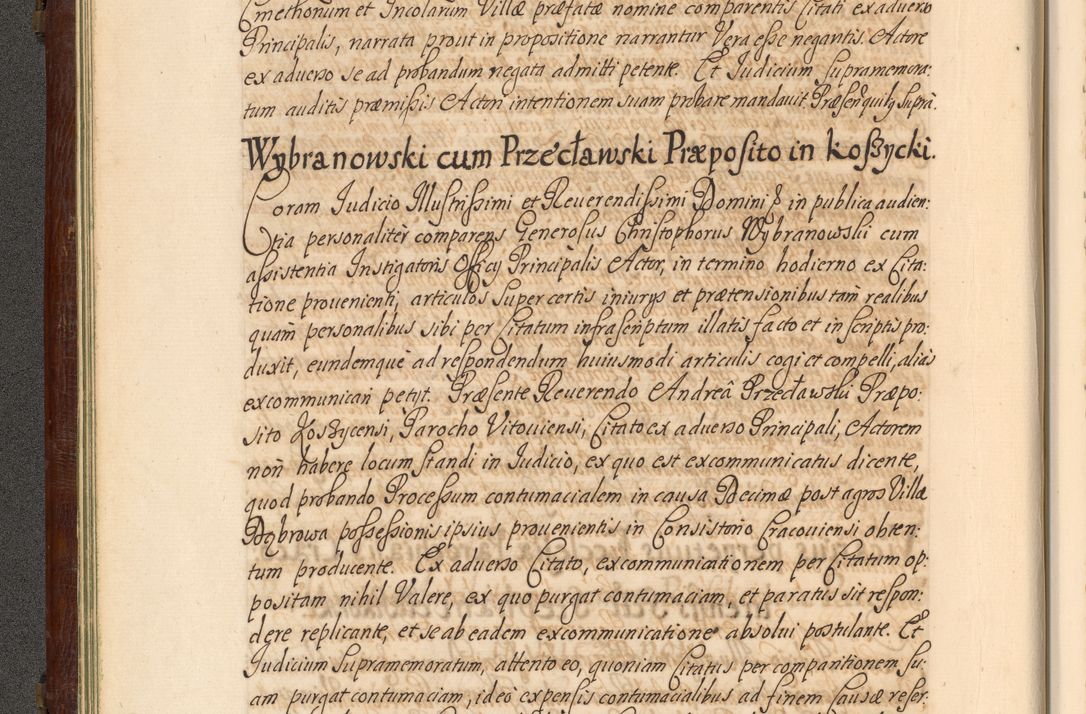 Cmethonum et Incolarum Villæ præfatæ nomine comparentis Citati ex aduerso
Principalis, narrata prout in propositione narrantur Vera esse negantis. Actore
ex aduerso se ad probandum negata admitti petente. Et Judicium supramemora:
tum auditis præmissis Actori intentionem suam probare mandauit. Præsen quibus supra.
Wybranowski cum Przecławski Præposito in koszycki.
Coram Judicio Illustrissimi et Reuerendissimi Domini in publica audien:
tia personaliter comparens Generosus Christophorus Wybranowski cum
assistentia Instigatoris Officij Principalis Actor, in termino hodierno ex Cita:
tione prouenienti, articulos super certis iniurys et prætensionibus tam realibus
quam personalibus sibi per Citatum infrascriptum illatis facto et in scriptis pro:
duxit, eundemque ad respondendum huiusmodi articulis cogi et compelli, alias
excommunicari petyt. Præsente Reuerendo Andreâ Przecławski Præpo:
sito Koszycensi, Parocho Vitouiensi, Citato ex aduerso Principali, Actorem
non habere locum standi in Judicio, ex quo est excommunicatus dicente,
quod probando Processum contumacialem in causa Decimæ post agros Villæ
Dąbrowa possessionis ipsius prouenientis in Consistorio Cracouiensi obten:
tum producente. Ex aduerso Citato, excommunicationem per Citatum op:
positam nihil Valere, ex quo purgat contumaciam, et paratus sit respon:
dere replicante, et se ab eadem excommunicatione absolui postulante. Et
Judicium supramemoratum, attento eo, quoniam Citatus per comparitionem su:
am purgat contumaciam, ideo expensis contumacialibus ad finem causæ reser: